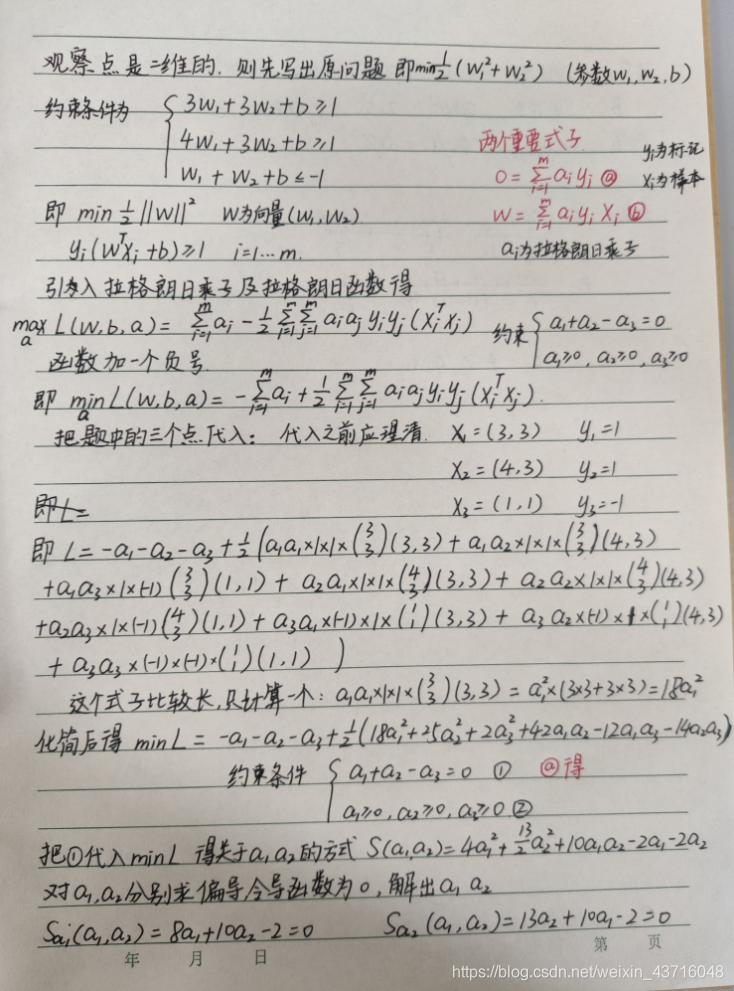 观察点是二维的. 则先写出原问题 即min½(w₁²+w₂²) (参数w₁,w₂,b)
约束条件为 { 3w₁+3w₂+b≥1
4w₁+3w₂+b≥1
w₁+w₂+b≤-1
两个重要式子
0=∑ᵢ₌₁ᵐ aᵢyᵢ ⓐ
w=∑ᵢ₌₁ᵐ aᵢyᵢxᵢ ⓑ
yᵢ为标记
xᵢ为样本
aᵢ为拉格朗日乘子
即 min ½||w||² w为向量(w₁,w₂)
yᵢ(wᵀxᵢ+b)≥1 i=1…m.
引入拉格朗日乘子及拉格朗日函数得
max_a L(w,b,a)= ∑ᵢ₌₁ᵐ aᵢ - ½ ∑ᵢ₌₁ᵐ ∑ⱼ₌₁ᵐ aᵢaⱼyᵢyⱼ(xᵢᵀxⱼ) 约束 { a₁+a₂-a₃=0
a₁≥0, a₂≥0, a₃≥0
函数加一个负号.
即 min_a L(w,b,a)= -∑ᵢ₌₁ᵐ aᵢ + ½ ∑ᵢ₌₁ᵐ ∑ⱼ₌₁ᵐ aᵢaⱼyᵢyⱼ(xᵢᵀxⱼ).
把题中的三个点代入: 代入之前应理清. x₁=(3,3) y₁=1
x₂=(4,3) y₂=1
即L= x₃=(1,1) y₃=-1
即 L=-a₁-a₂-a₃+½(a₁a₁×1×1×(3 3)(3,3)+a₁a₂×1×1×(3 3)(4,3)
+a₁a₃×1×(-1)(3 3)(1,1)+a₂a₁×1×1×(4 3)(3,3)+a₂a₂×1×1×(4 3)(4,3)
+a₂a₃×1×(-1)(4 3)(1,1)+a₃a₁×(-1)×1×(1 1)(3,3)+a₃a₂×(-1)×1×(1 1)(4,3)
+a₃a₃×(-1)×(-1)×(1 1)(1,1) )
这个式子比较长,只计算一个: a₁a₁×1×1×(3 3)(3,3)=a₁²×(3×3+3×3)=18a₁²
化简后得 minL=-a₁-a₂-a₃+½(18a₁²+25a₂²+2a₃²+42a₁a₂-12a₁a₃-14a₂a₃)
约束条件 { a₁+a₂-a₃=0 ① ⓐ得
a₁≥0, a₂≥0, a₃≥0 ②
把①代入minL 得关于a₁a₂的方式 S(a₁,a₂)=4a₁²+13/2a₂²+10a₁a₂-2a₁-2a₂
对a₁,a₂分别求偏导令导函数为0,解出a₁ a₂
Sa₁'(a₁,a₂)=8a₁+10a₂-2=0 Sa₂(a₁,a₂)=13a₂+10a₁-2=0
年 月 日 第 页
https://blog.csdn.net/weixin_43716048